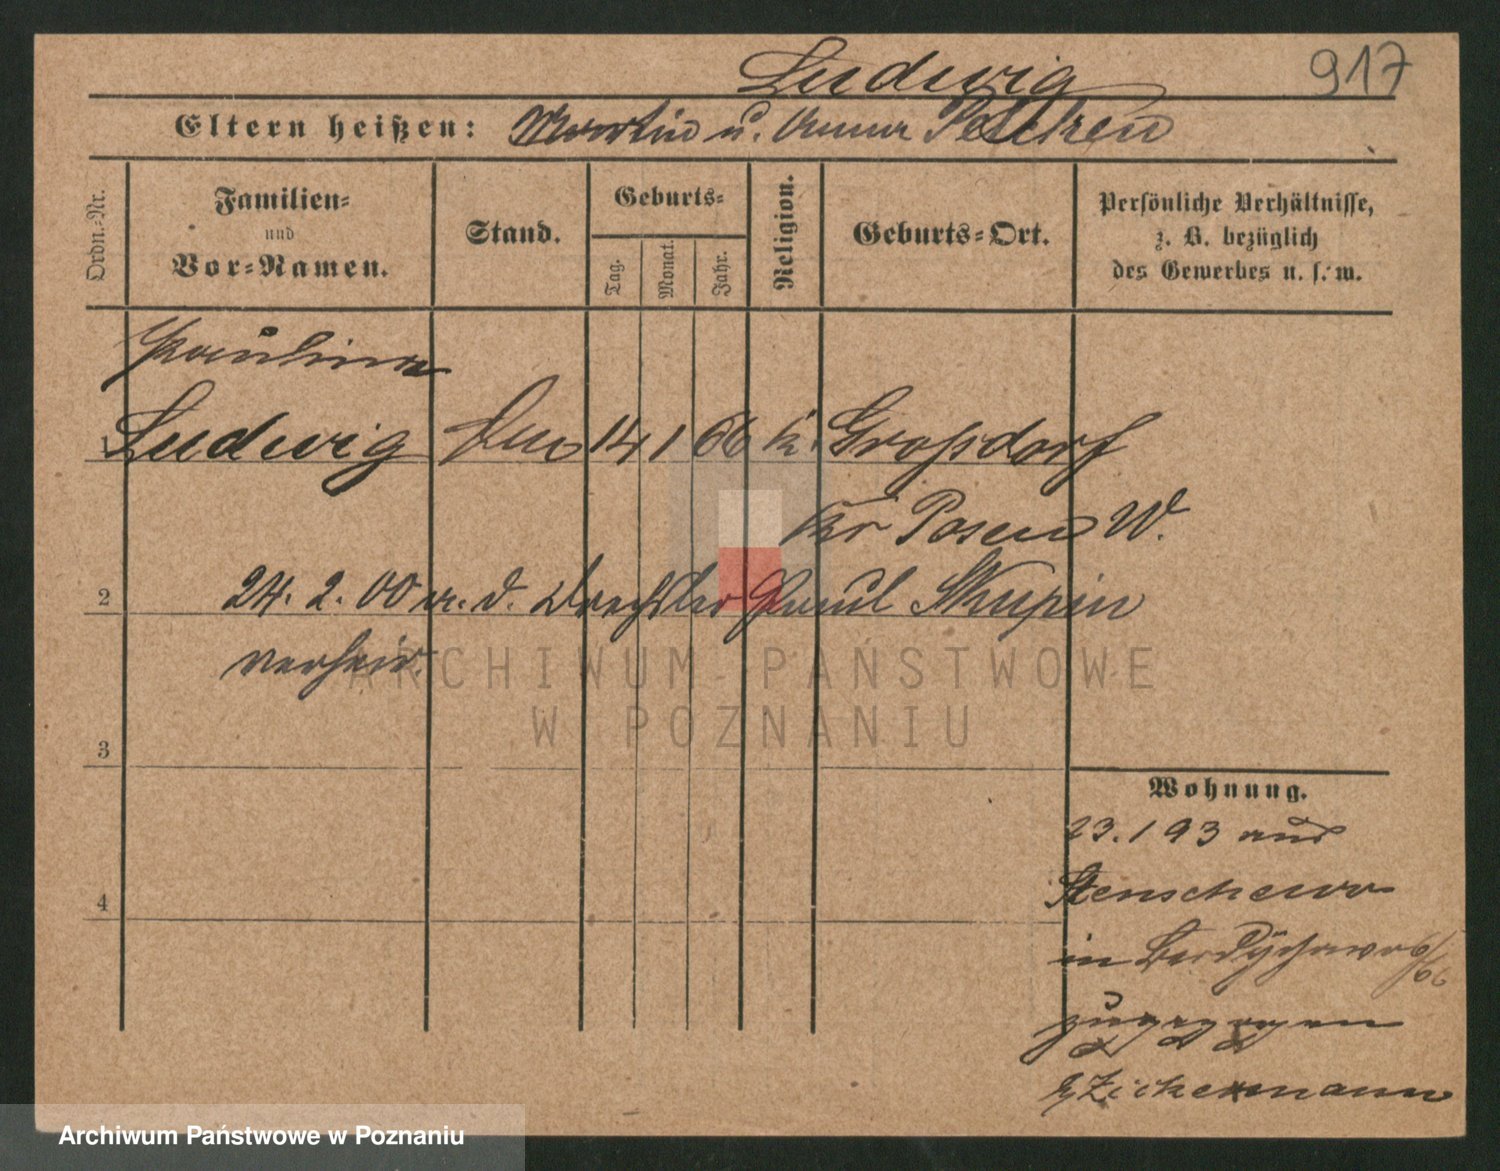 Ludwig
917
Eltern heißen: Martin u. Anna
Ordn.-Nr.
Familien-
und
Vor-Namen.
Stand.
Geburts-
Tag.
Monat.
Jahr.
Religion.
Geburts-Ort.
Persönliche Verhältnisse,
z. B. bezüglich
des Gewerbes u. s. w.
Paulina
1 Ludwig 14 1 66 k. Großdorf
Kr Posen W.
2 24. 2. 00 m. d. Drechsler Paul Skupin
verheir.
3
4
Wohnung.
23. 1 93 aus
Stenschewo
in Berdychowo
zugezogen
Zickermann
ARCHIWUM PAŃSTWOWE
W POZNANIU
Archiwum Państwowe w Poznaniu